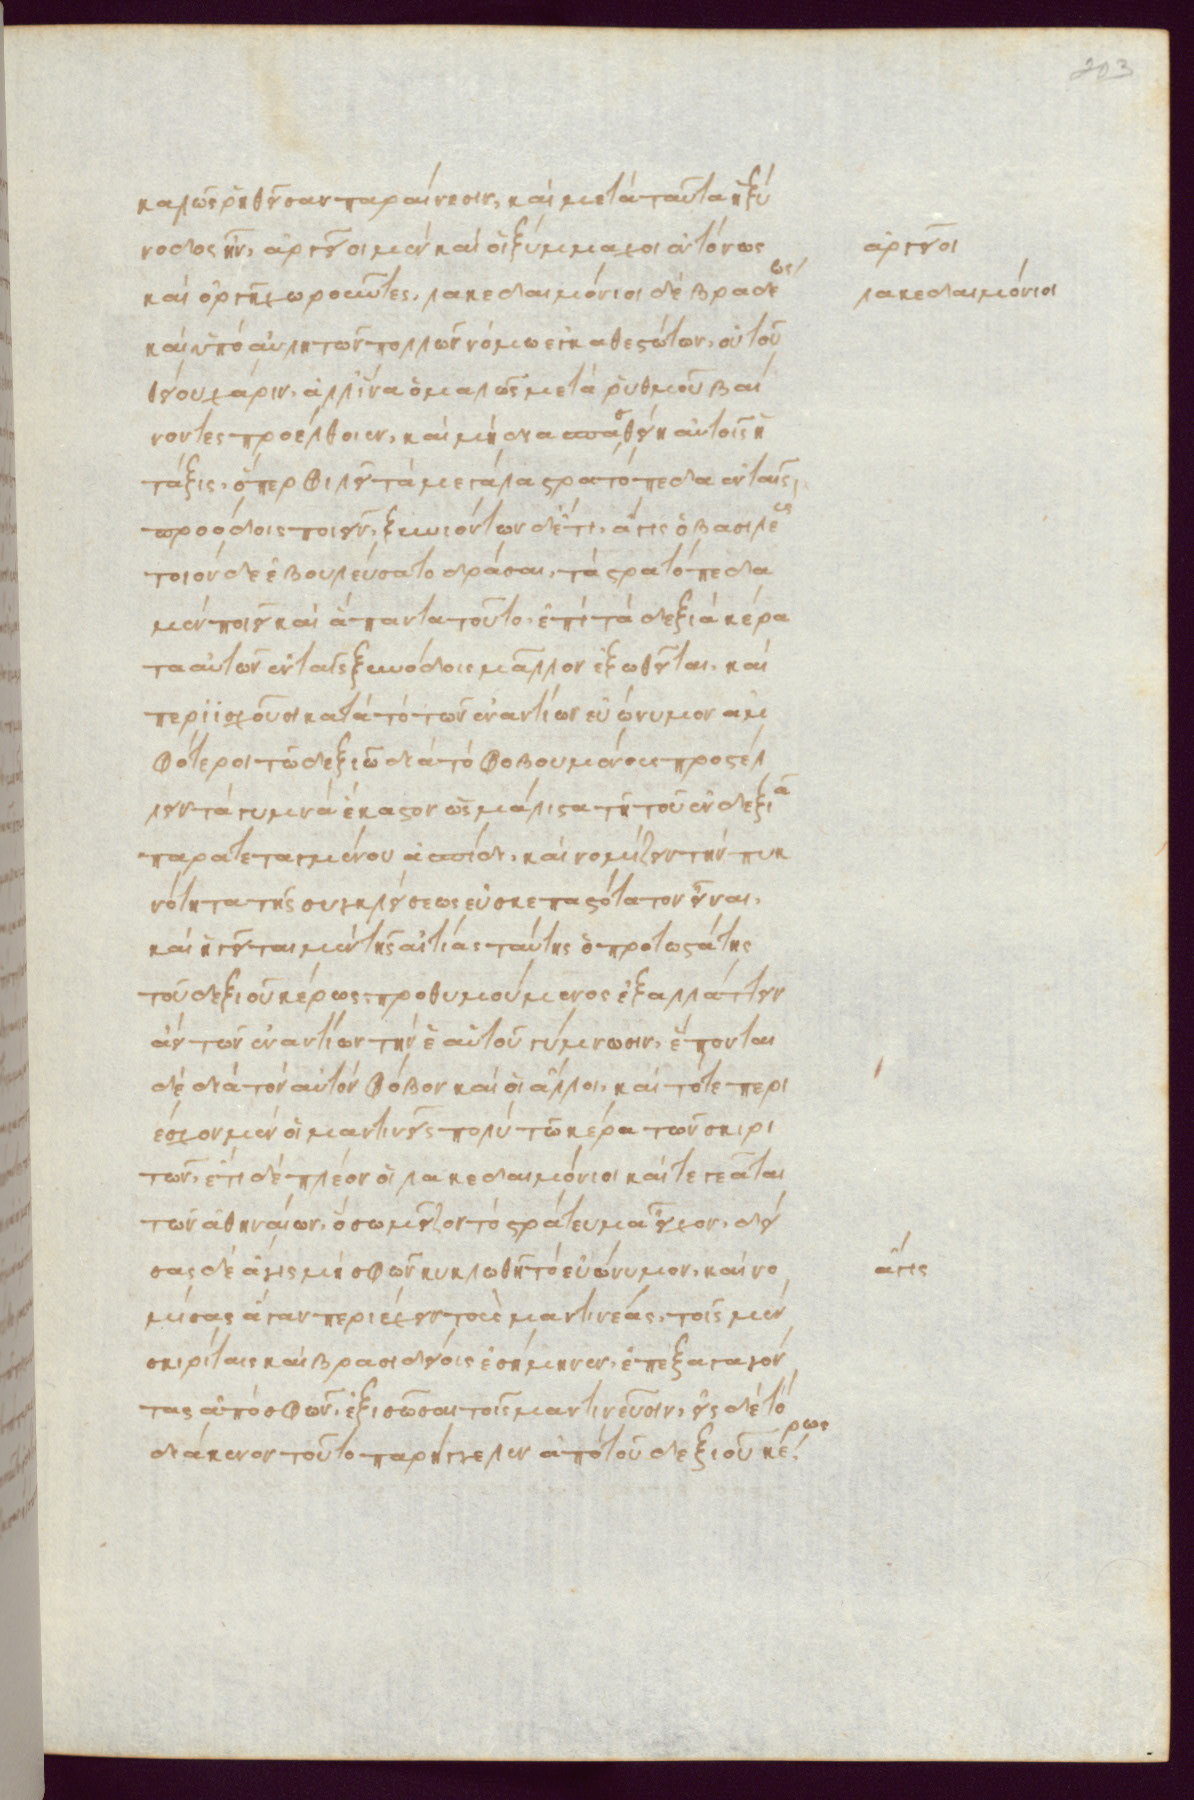 203
καλῶς ῥηθεῖσαν παραίνεσιν, καὶ μετὰ ταῦτα ἡ ξύ
νοδος ἦν, ἀργεῖοι μὲν καὶ οἱ ξύμμαχοι ἐντόνως
ἀργεῖοι
καὶ ὀργῇ χωροῦντες, λακεδαιμόνιοι δὲ βραδέως
λακεδαιμόνιοι
καὶ ὑπὸ αὐλητῶν πολλῶν νόμω ἐγκαθεστώτων, οὐ τοῦ
θείου χάριν, ἀλλ' ἵνα ὁμαλῶς μετὰ ῥυθμοῦ βαί
νοντες προέλθοιεν, καὶ μὴ διασπασθείη αὐτοῖς ἡ
τάξις, ὅπερ φιλεῖ τὰ μεγάλα στρατόπεδα ἐν ταῖς
προσόδοις ποιεῖν, ξυνιόντων δ' ἔτι, ἆγις ὁ βασιλεὺς
τοιόνδε ἐβουλεύσατο δρᾶσαι, τὰ στρατόπεδα
μὲν ποιεῖ καὶ ἅπαντα τοῦτο, ἐπὶ τὰ δεξιὰ κέρα
τα αὐτῶν ἐν ταῖς ξυνόδοις μᾶλλον ἐξωθεῖται, καὶ
περιίσχουσι κατὰ τὸ τῶν ἐναντίων εὐώνυμον ἀμ
φότεροι τῶ δεξιῶ διὰ τὸ φοβουμένους προστέλ
λειν τὰ γυμνὰ ἕκαστον ὡς μάλιστα τῆ τοῦ ἐν δεξιᾶ
παρατεταγμένου ἀσπίδι, καὶ νομίζειν τὴν πυκ
νότητα τῆς συγκλήσεως εὐσκεπαστότατον εἶναι,
καὶ ἡγεῖται μὲν τῆς αἰτίας ταύτης ὁ πρωτοστάτης
τοῦ δεξιοῦ κέρως, προθυμούμενος ἐξαλλάττειν
ἀεὶ τῶν ἐναντίων τὴν ἑαυτοῦ γύμνωσιν, ἕπονται
δὲ διὰ τὸν αὐτὸν φόβον καὶ οἱ ἄλλοι, καὶ τότε περι
έσχον μὲν οἱ μαντινεῖς πολὺ τῶ κέρα τῶν σκιρι
τῶν, ἔτι δὲ πλέον οἱ λακεδαιμόνιοι καὶ τεγεᾶται
τῶν ἀθηναίων, ὅσω μεῖζον τὸ στράτευμα εἶχον, δεί
σας δὲ ἆγις μὴ σφῶν κυκλωθῆ τὸ εὐώνυμον, καὶ νο
ἆγις
μίσας ἄγαν περιέχειν τοὺς μαντινέας, τοῖς μὲν
σκιρίταις καὶ βρασιδείοις ἐσήμηνεν, ἐπεξαγαγόν
τας ἀπὸ σφῶν, ἐξισῶσαι τοῖς μαντινεῦσιν, εἰς δὲ τὸ
διάκενον τοῦτο παρήγγελεν ἀπὸ τοῦ δεξιοῦ κέρως